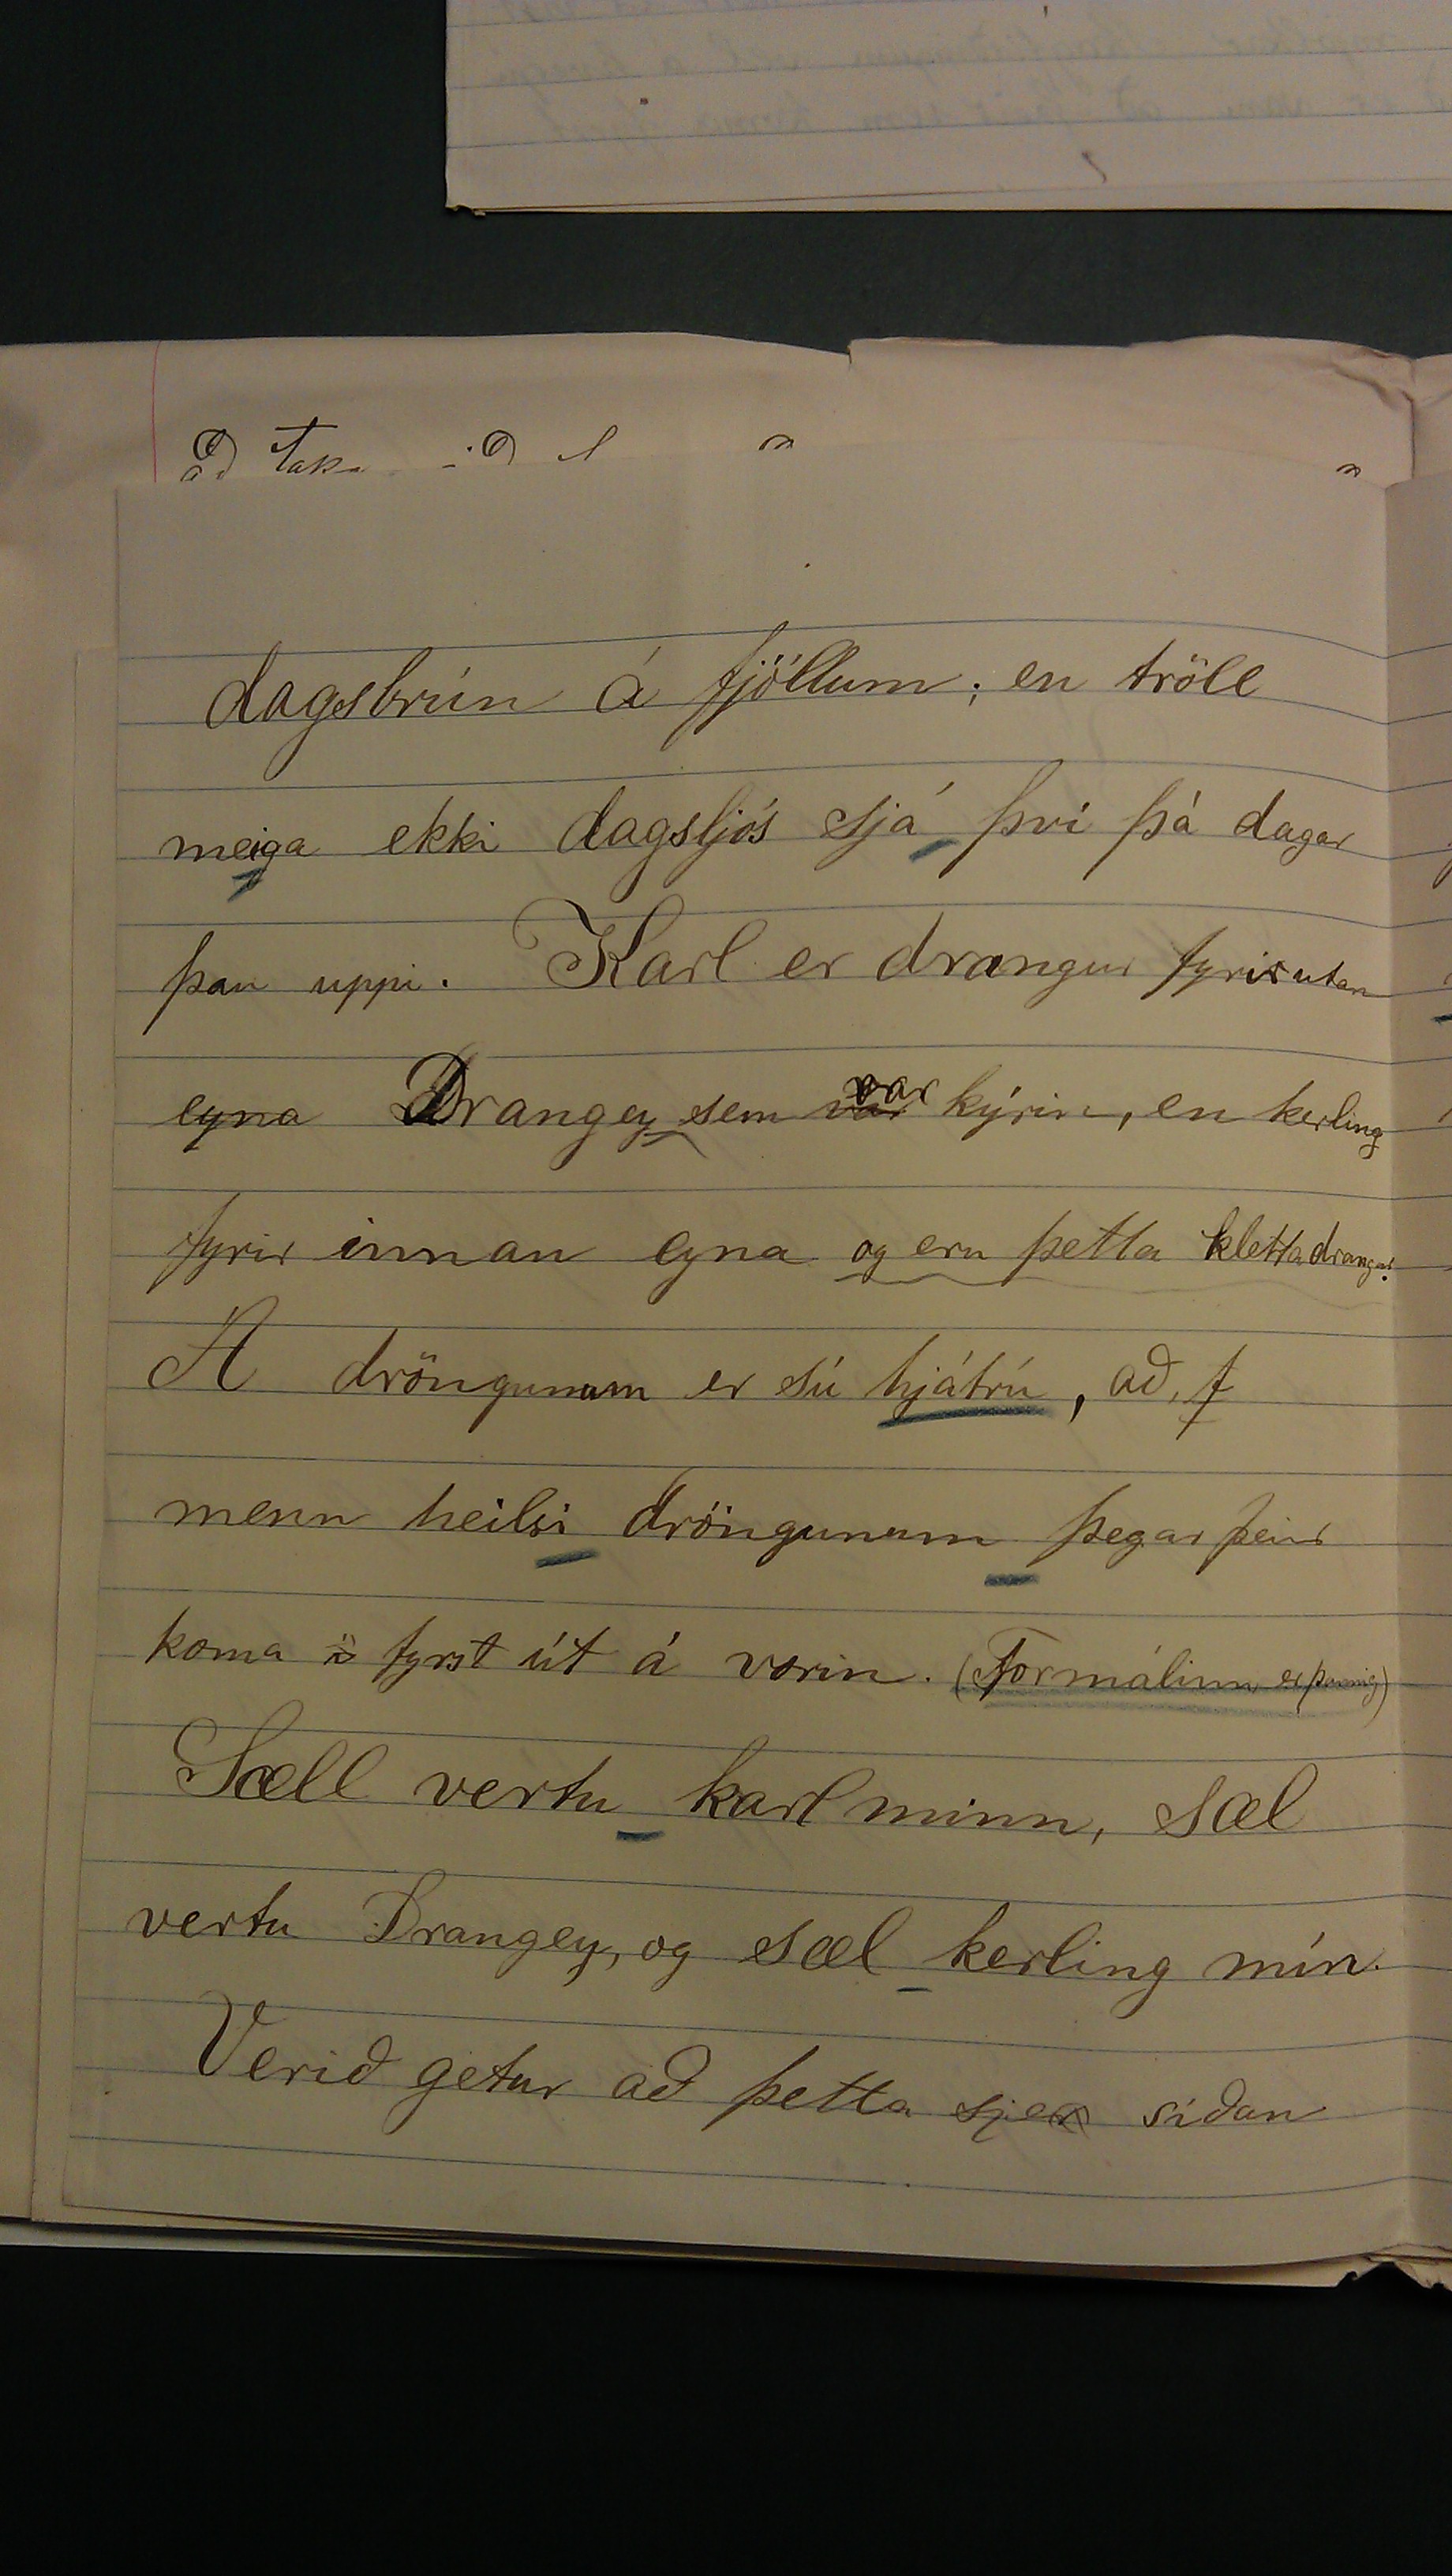 að taka
dagsbrún á fjöllum; en tröll
meiga ekki dagsljós sjá því þá dagar
þau uppi. Karl er drangur fyrir utan
eyna Drangey sem var var kýrin, en kerling
fyrir innan eyna og eru þetta klettadrangar.
Á dröngunum er sú hjátrú, að f
menn heilsi dröngunum þegar þeir
koma fyrst út á vorin. (Formálinn er þannig)
Sæll vertu karl minn, sæl
vertu Drangey, og sæl kerling mín.
Verið getur að þetta sje síðan